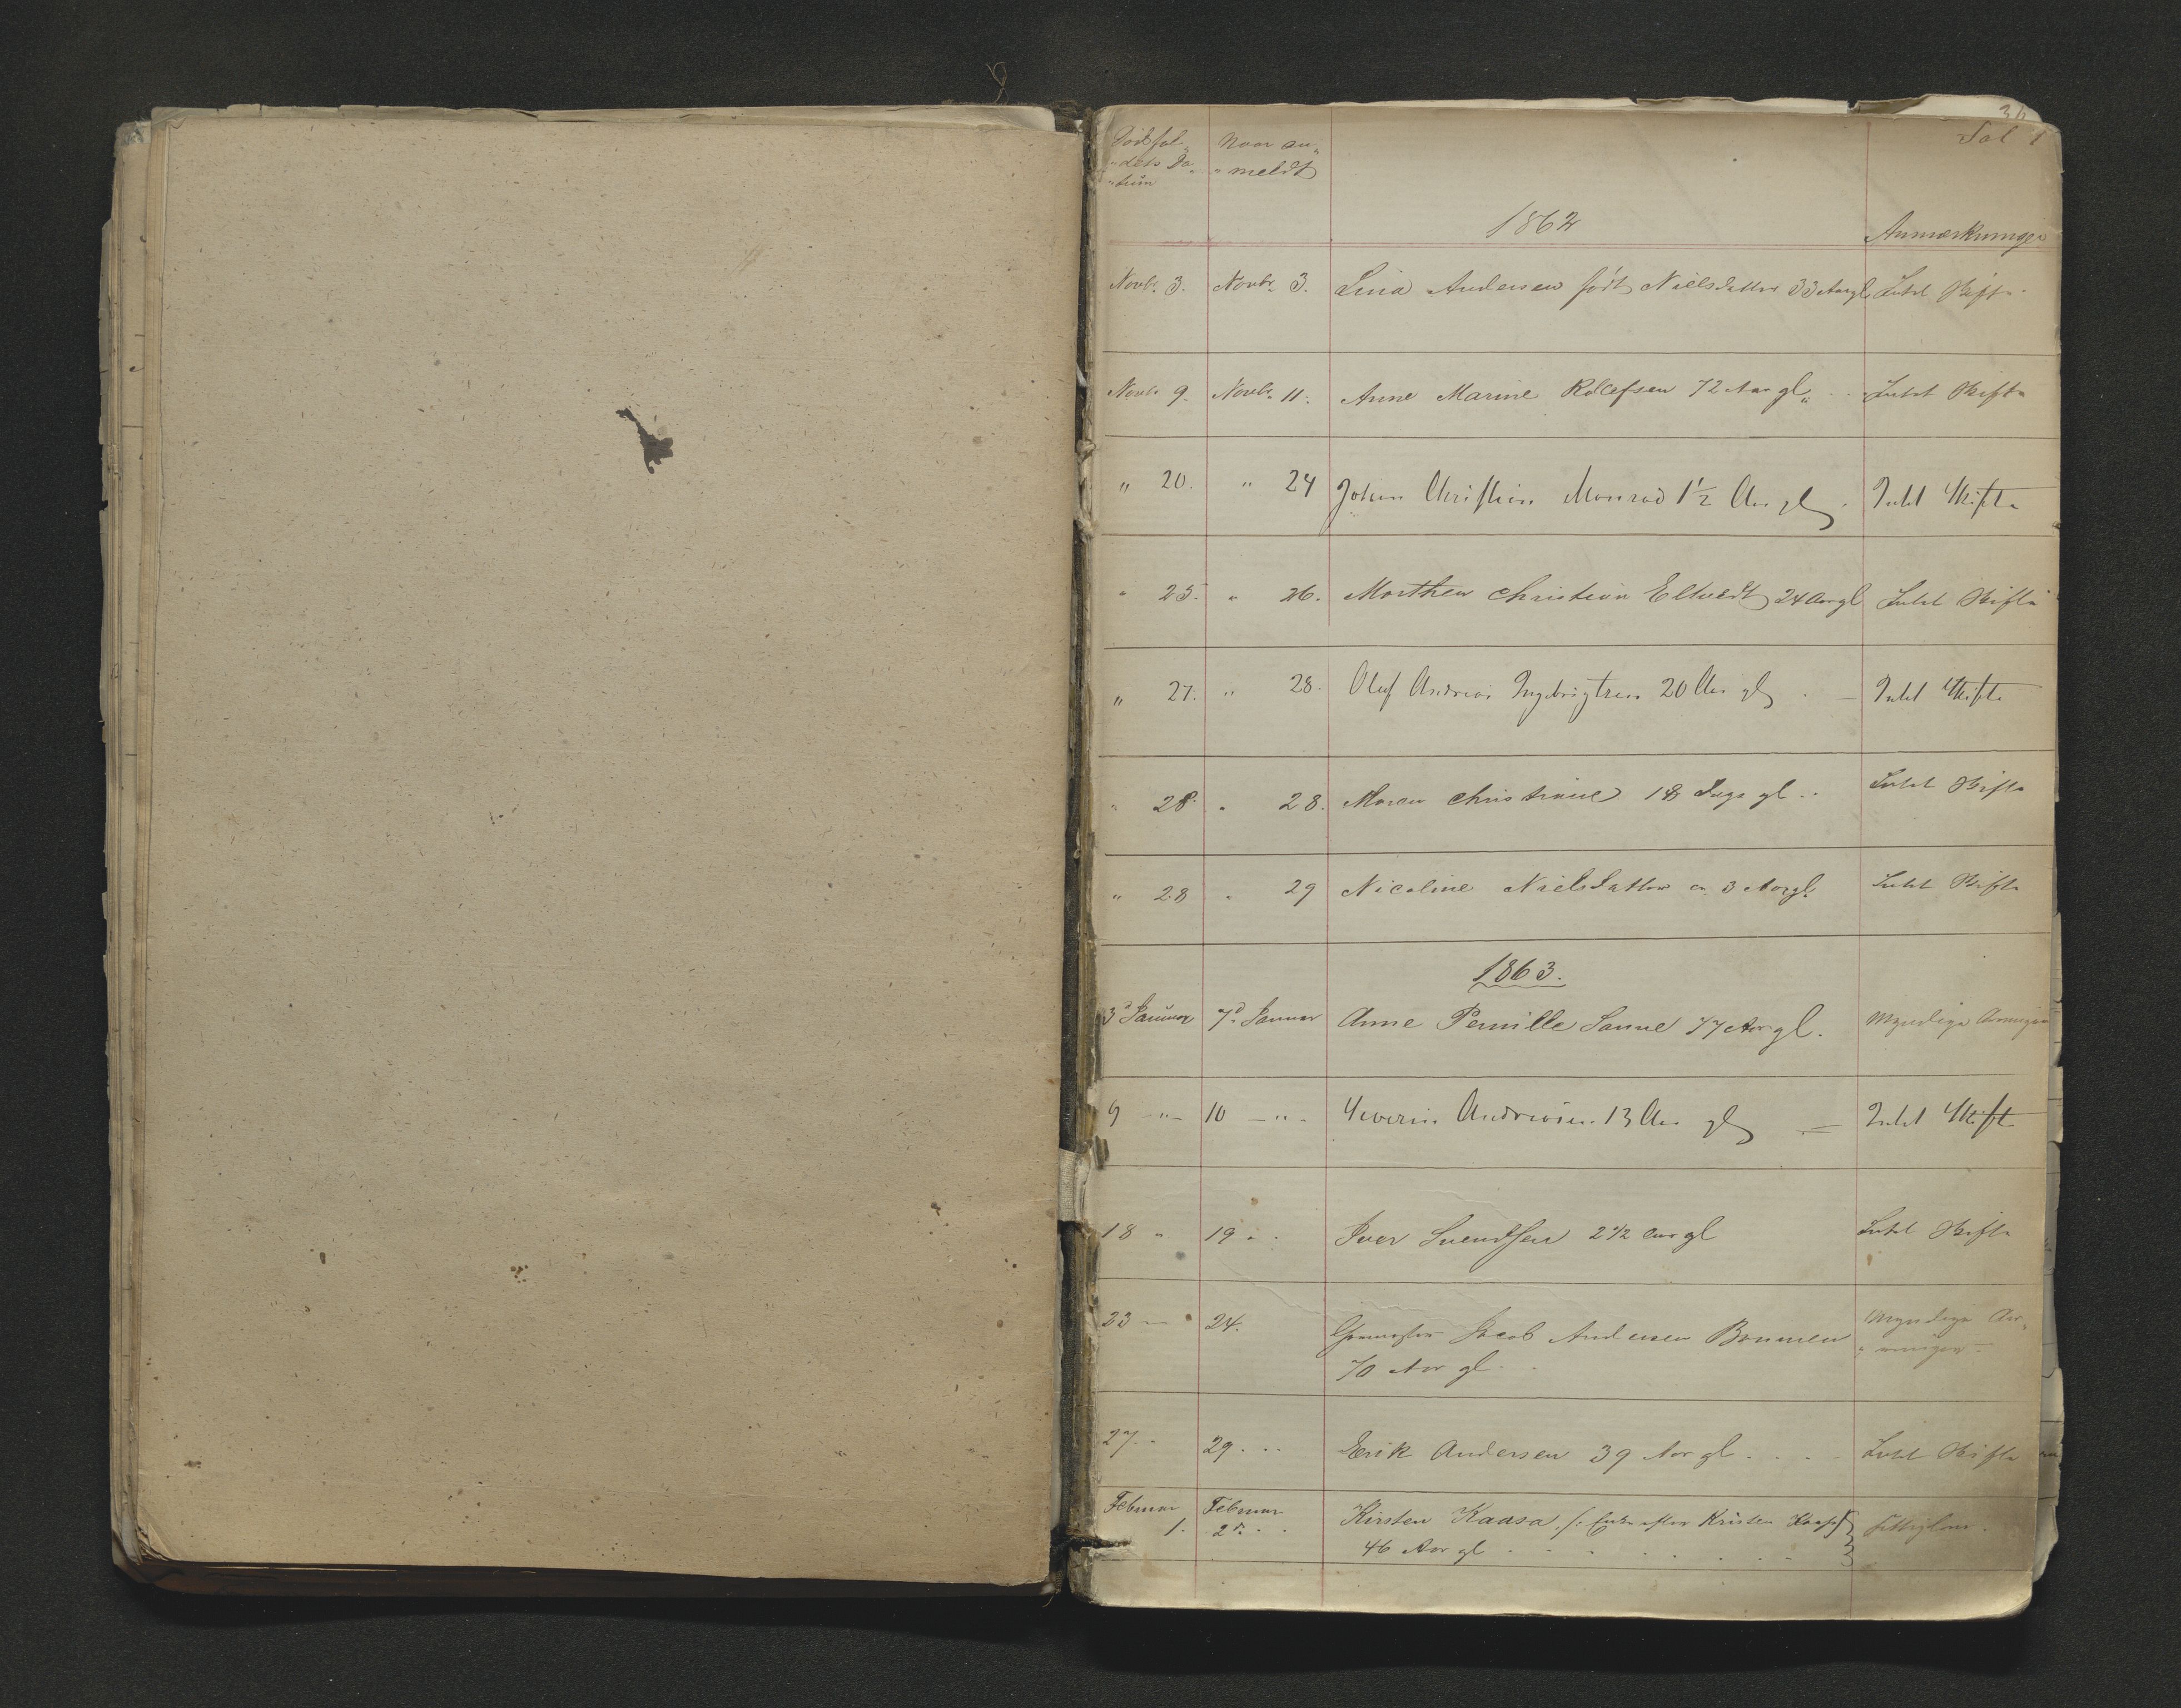 Fol 1
Dødsfal-
-dets Da-
-tum
Naar an-
-meldt
1862
Anmærkninger
Novbr. 3. Novbr. 3. Lina Andersen født Nielsdatter 33 Aar gl Intet Skifte
Novbr. 9. Novbr. 11. Anne Marine Rolefsen 72 Aar gl. Intet Skifte
" 20. " 24 Johan Christian Monrad 1½ Aar gl. Intet Skifte
" 25. " 26. Morthen Christian Eltvedt 24 Aar gl Intet Skifte
" 27. " 28. Oluf Andreas Ingebrigtsen 20 Aar gl. Intet Skifte
" 28. " 28. Maren Christine 18 Dage gl. Intet Skifte
" 28 " 29 Nicoline Nielsdatter 3 Aar gl. Intet Skifte
1863.
3d Januar 7d. Januar Anne Pernille Sanne 77 Aar gl. Myndige Arvinger
9 " 10 " Severin Andreasen 13 Aar gl Intet Skifte
18 " 19 " Iver Svendsen 2½ Aar gl Intet Skifte
23 — 24. Jacob Andersen Brummen Myndige Ar-
70 Aar gl. -vinger
27 " 29. " Erik Andersen 39 Aar gl. Intet Skifte
Februar Februar Kirsten Kaasa /: Enke efter Kristen
1. 2d. 46 Aar gl